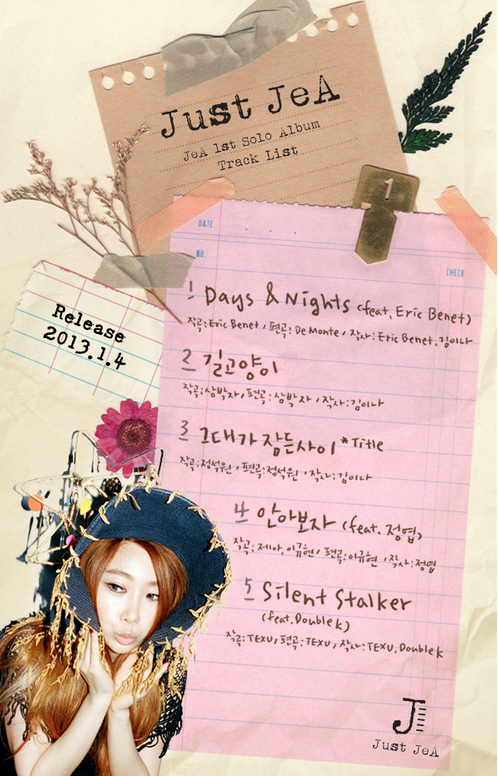 Just JeA
JeA 1st Solo Album
Track List
1
DATE
NO.
CHECK
Release
2013.1.4
1 Days & Nights (feat. Eric Benet)
작곡:Eric Benet / 편곡:DeMonte / 작사:Eric Benet, 김이나
2 길고양이
작곡:삼박자 / 편곡:삼박자 / 작사:김이나
3 그대가 잠든사이 *Title
작곡:정석원 / 편곡:정석원 / 작사:김이나
4 안아보자 (feat. 정엽)
작곡:제아, 이규현 / 편곡:이규현 / 작사:정엽
5 Silent Stalker
(feat. Double K)
작곡:TEXU, 편곡:TEXU, 작사:TEXU, Double K
J
Just JeA